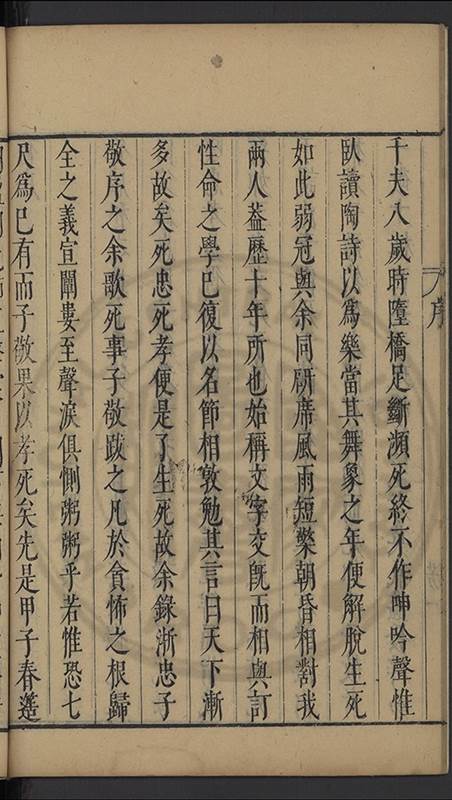 千夫八歲時墮橋足斷瀕死終不作呻吟聲惟
臥讀陶詩以爲樂當其舞象之年便解脫生死
如此弱冠與余同研席風雨短檠朝昏相對我
兩人葢歷十年所也始稱文字交旣而相與訂
性命之學巳復以名節相敦勉其言曰天下漸
多故矣死忠死孝便是了生死故余錄浙忠子
敬序之余歌死事子敬跋之凡於貪怖之根歸
全之義宣闡婁至聲淚俱惻粥粥乎若惟恐七
尺爲巳有而子敬果以孝死矣先是甲子春蓬
序